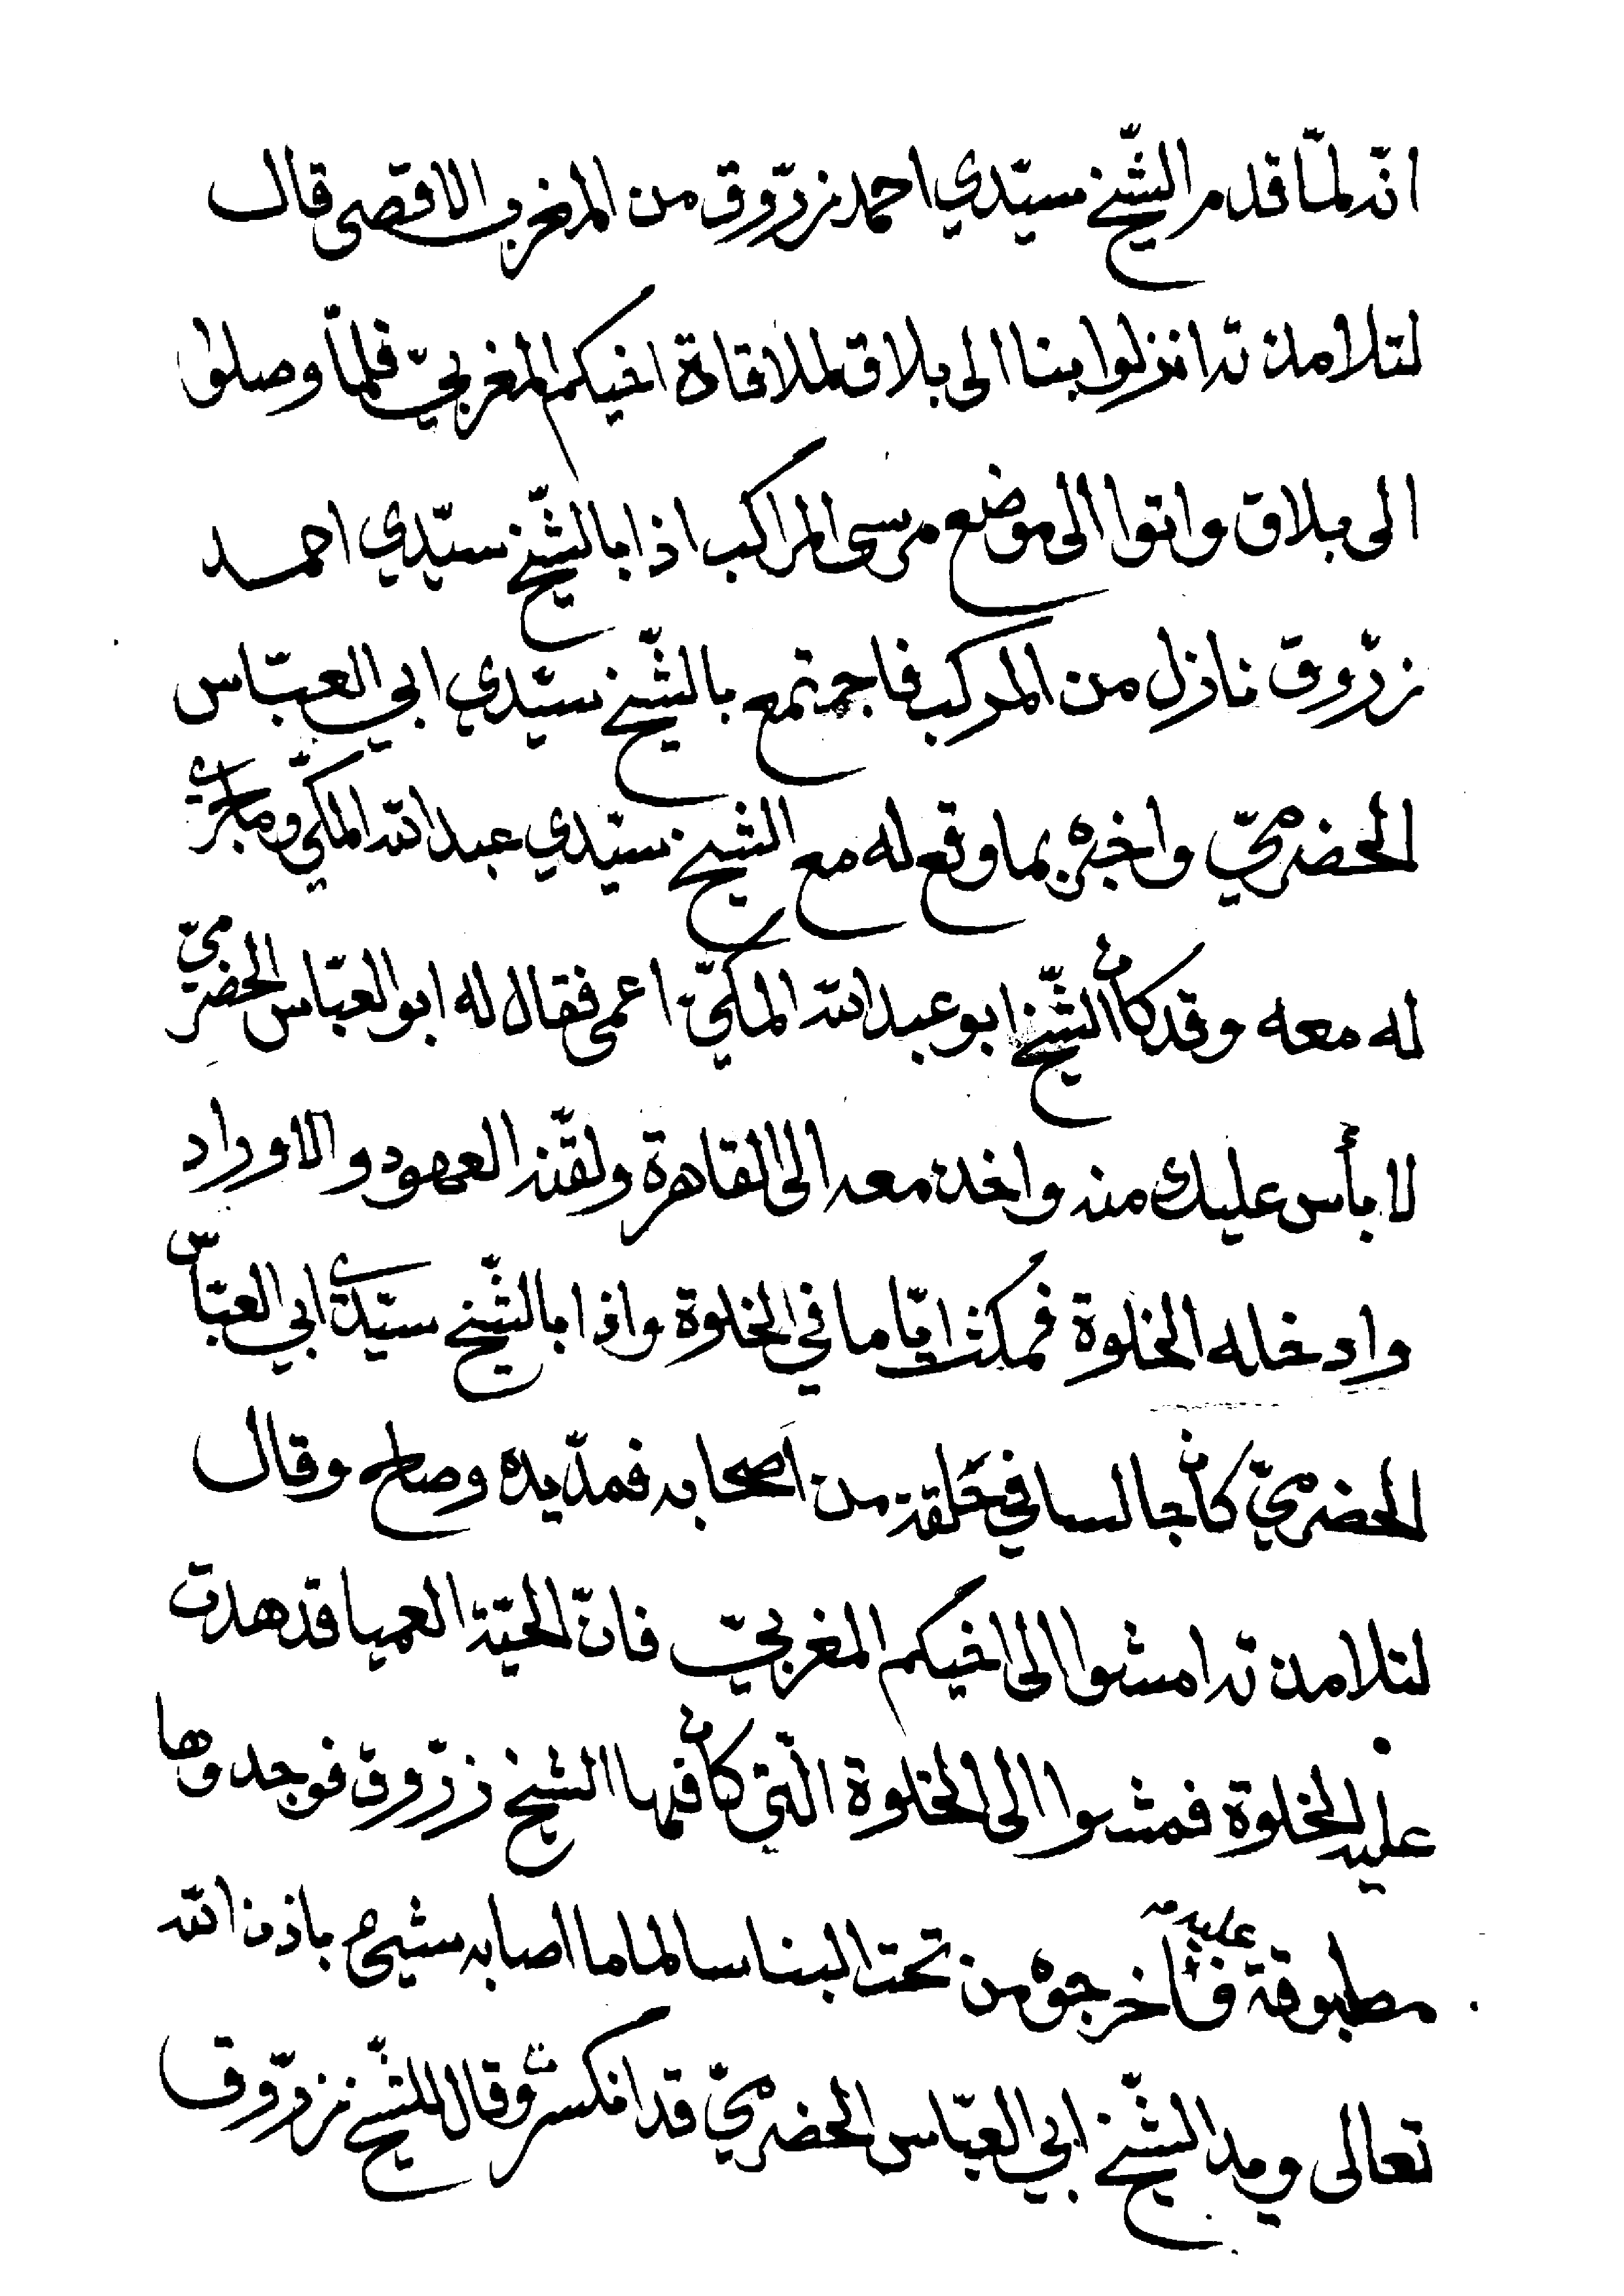 انّه لمّا قدم الشّيخ سيّدي احمد زرّوق من المغرب الاقصى قال
لتلامذته انزلوا بنا الى بلاق لملاقاة اخيكم المغربيّ فلمّا وصلوا
الى بلاق واتوا الى موضع مرسى المراكب اذا بالشّيخ سيّدي احمد
زرّوق نازل من المركب فاجتمع بالشّيخ سيّدي ابي العبّاس
الحضرميّ واخبره بما وقع له مع الشيخ سيّدي عبد الله المكّي وما جرى
له معه وقد كان الشّيخ ابو عبد الله المكّيّ اعمى فقال له ابو العبّاس الحضرميّ
لا بأس عليك منه واخذه معه الى القاهرة ولقّنه العهود والاوراد
وادخله الخلوة فمكث ايّاما في الخلوة واذا بالشّيخ سيّدي ابي العبّاس
الحضرميّ كان جالسا في حَلقة من اصحابه فمدّ يده وصاح وقال
لتلامذته امشوا الى اخيكم المغربيّ فانّ الحيّة العميا قد هدت
عليه الخلوة فمشوا الى الخلوة الّتي كان فيها الشيخ زرّوق فوجدوها
مطبوقة عليه فاخرجوه من تحت البنا سالما ما اصابه شيء باذن الله
تعالى ويد الشّيخ ابي العبّاس الحضرميّ قد انكسرت وقال للشّيخ زرّوق